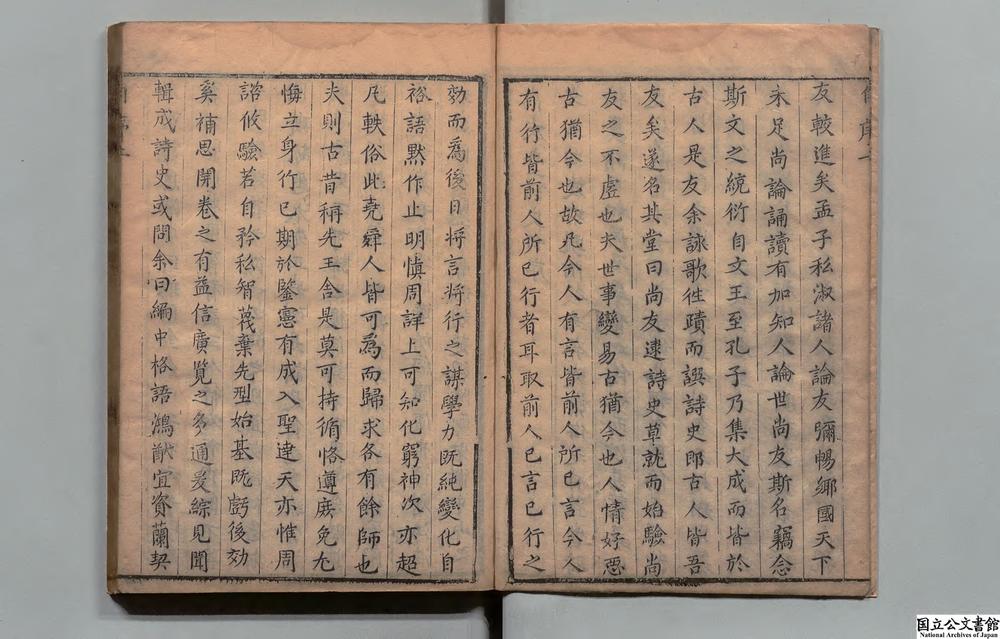 友較進矣孟子私淑諸人論友彌暢鄉國天下
未足尚論誦讀有加知人論世尚友斯名竊念
斯文之統衍自文王至孔子乃集大成而皆於
古人是友余詠歌徃蹟而譔詩史郎古人皆吾
友矣遂名其堂曰尚友逮詩史草就而始驗尚
友之不虛也夫世事變易古猶今也人情好惡
古猶今也故凡今人有言皆前人所已言今人
有行皆前人所已行者耳取前人已言已行之
効而爲後日將言將行之謀學力既純變化自
裕語默作止明慎周詳上可知化窮神次亦超
凡軼俗此堯舜人皆可為而歸求各有餘師也
夫則古昔稱先王舍是莫可持循恪遵庶免尤
悔立身行已期於鑒憲有成入聖達天亦惟周
諮攸驗若自矜私智蔑棄先型始基既虧後効
奚補思開卷之有益信廣覽之多通爰綜見聞
輯成詩史或問余曰編中格語鴻猷宜資蘭契
国立公文書館
National Archives of Japan